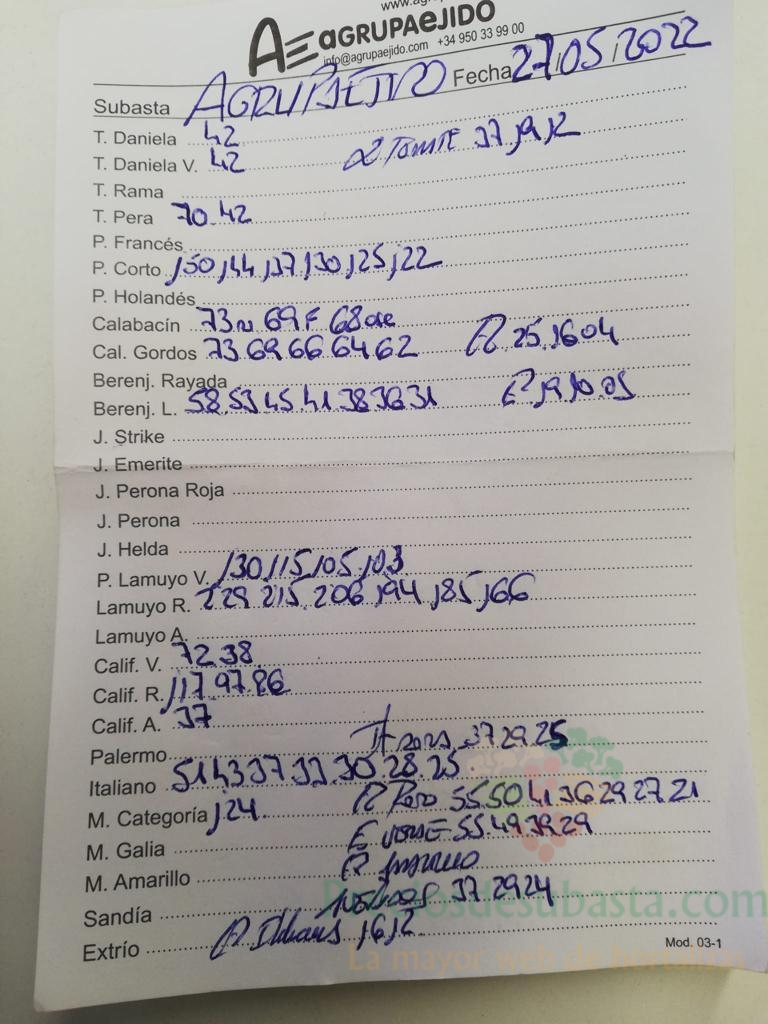 www.ag
AGRUPAEJIDO
info@agrupaejido.com +34 950 33 99 00
Subasta AGRUPAEJIDO Fecha 27/05/2022
T. Daniela 42
T. Daniela V. 42
T. Rama
T. Pera 70.42
P. Francés
P. Corto 150, 144, 137, 130, 125, 122
P. Holandés
Calabacín 73 69 F 68
Cal. Gordos 73 69 66 64 62 R 25.16 04
Berenj. Rayada
Berenj. L. 58.53 45.41 38 36 31 19.10.05
J. Strike
J. Emerite
J. Perona Roja
J. Perona
J. Helda
P. Lamuyo V. 130, 115, 105, 103
Lamuyo R. 229 215.206, 194, 185, 166
Lamuyo A.
Calif. V. 72 38
Calif. R. 117.97.86
Calif. A. 37
Palermo 37 29 25
Italiano 51 43 37 33.30.28.25
M. Categoría 124 55 50 41 36 29 27 21
M. Galia 55.49 39 29
M. Amarillo
Sandía 37 29 24
Extrío 16, 12
Preciosdesubasta.com
La mayor web de hortalizas
Mod. 03-1